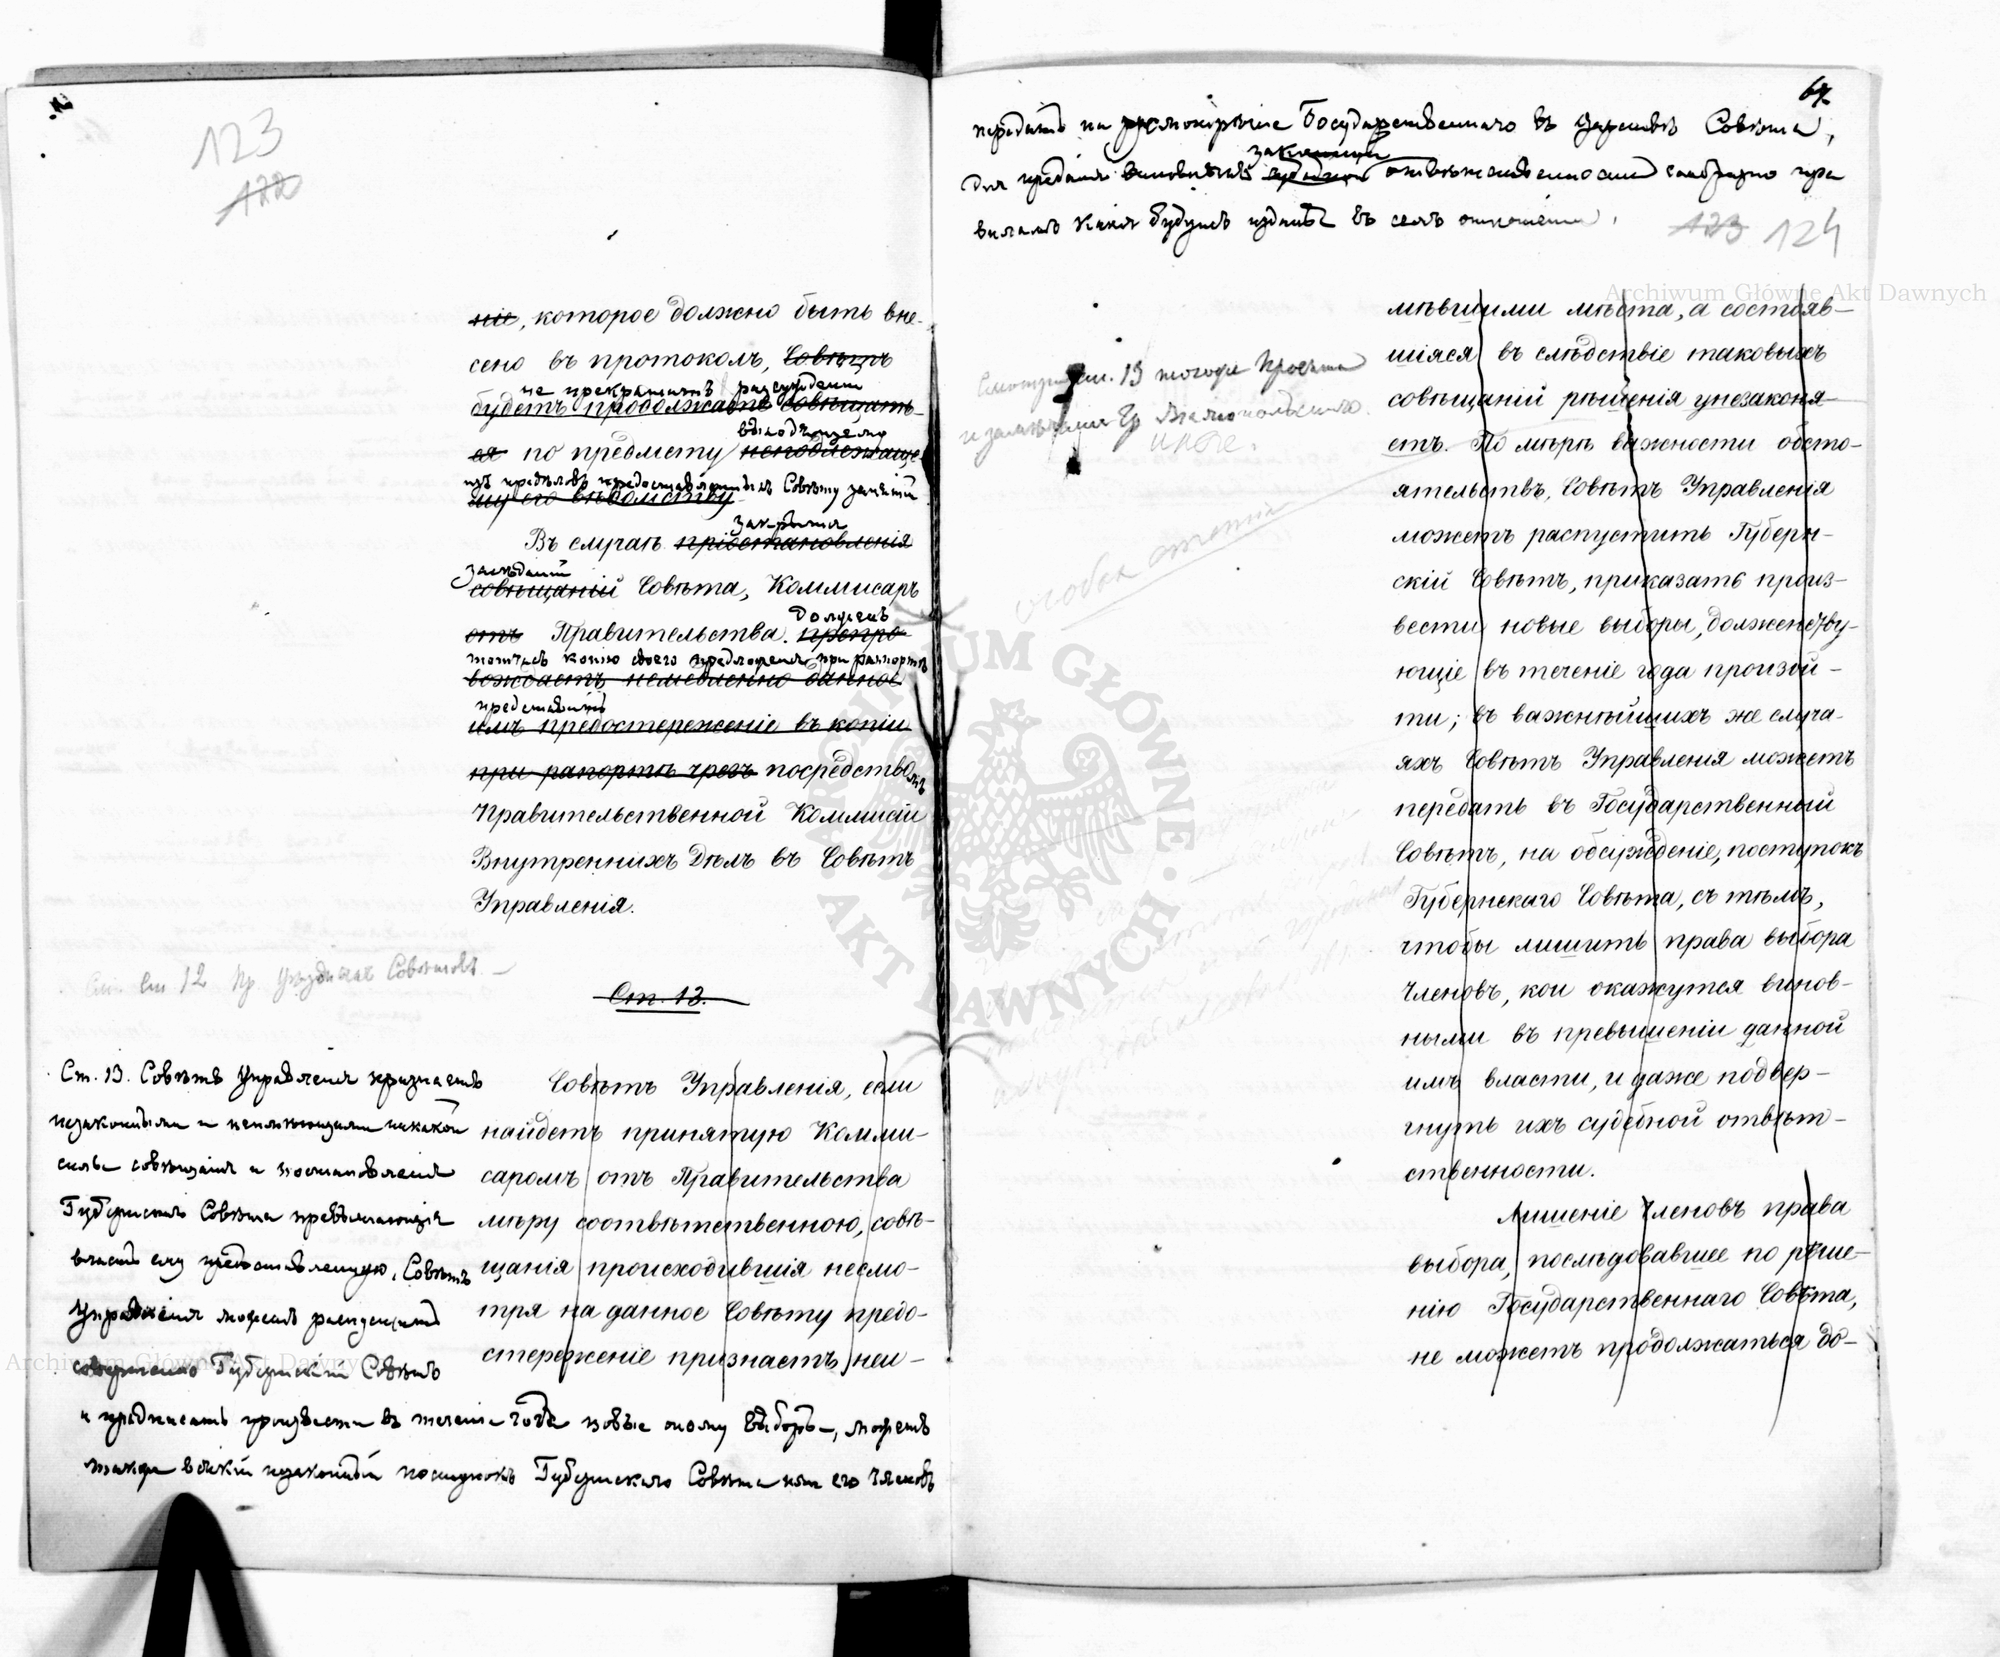 123
122
ніе, которое должно быть вне-
сено въ протоколъ, Совѣтъ
не прекратитъ разсужденій
будетъ продолжать совѣщать-
выходящему
ся по предмету неподлежаще-
изъ предѣловъ предоставленныхъ Совѣту занятій
му его вѣдомству
закрытія
Въ случаѣ пріостановленія
засѣданій
совѣщаній Совѣта, Коммисаръ
долженъ
отъ Правительства препро-
тотчасъ копію своего предложенія при рапортѣ
вождаетъ немедленно данное
представить
имъ предостереженіе въ копіи
при рапортѣ чрезъ посредствомъ
Правительственной Коммисіи
Внутреннихъ Дѣлъ въ Совѣтъ
Управленія.
Ст 12 Пр. Уѣздныхъ Совѣтовъ
Ст. 13.
Ст. 13. Совѣтъ Управленія признаетъ
незаконными и неимѣющими никакой
силы совѣщанія и постановленія
Губернскаго Совѣта превышающія
власть ему предоставленную. Совѣтъ
Управленія можетъ распустить
Губернскій Совѣтъ
и предписать произвести въ теченіе года новые оному выборы, можетъ
также всякій незаконный поступокъ Губернскаго Совѣта или его членовъ
Совѣтъ Управленія, если
найдетъ принятую Комми-
саромъ отъ Правительства
мѣру соотвѣтственною, совѣ-
щанія происходившія несмо-
тря на данное Совѣту предо-
стереженіе признаетъ неи-
67
передать на разсмотрѣніе Государственнаго въ Царствѣ Совѣта,
законной
для преданія виновныхъ судебной отвѣтственности сообразно пра
виламъ какія будутъ изданы въ семъ отношеніи.
123 124
Смотри ст. 13 Проекта
и замѣчанія Гр. Велепольскаго
особая отмѣтка
мѣвшими мѣста, а состояв-
шіяся въ слѣдствіе таковыхъ
совѣщаній рѣшенія унезаконя-
етъ. По мѣрѣ важности обсто-
ятельствъ, Совѣтъ Управленія
можетъ распустить Губерн-
скій Совѣтъ, приказать произ-
вести новые выборы, долженству-
ющіе въ теченіе года произой-
ти; въ важнѣйшихъ же случа-
яхъ Совѣтъ Управленія можетъ
передать въ Государственный
Совѣтъ, на обсужденіе, поступокъ
Губернскаго Совѣта, съ тѣмъ,
чтобы лишить права выбора
членовъ, кои окажутся винов-
ными въ превышеніи данной
имъ власти, и даже подвер-
гнуть ихъ судебной отвѣт-
ственности.
Лишеніе членовъ права
выбора, послѣдовавшее по рѣше-
нію Государственнаго Совѣта,
не можетъ продолжаться до-
Archiwum Główne Akt Dawnych
Archiwum Główne Akt Dawnych
ARCHIWUM GŁÓWNE AKT DAWNYCH